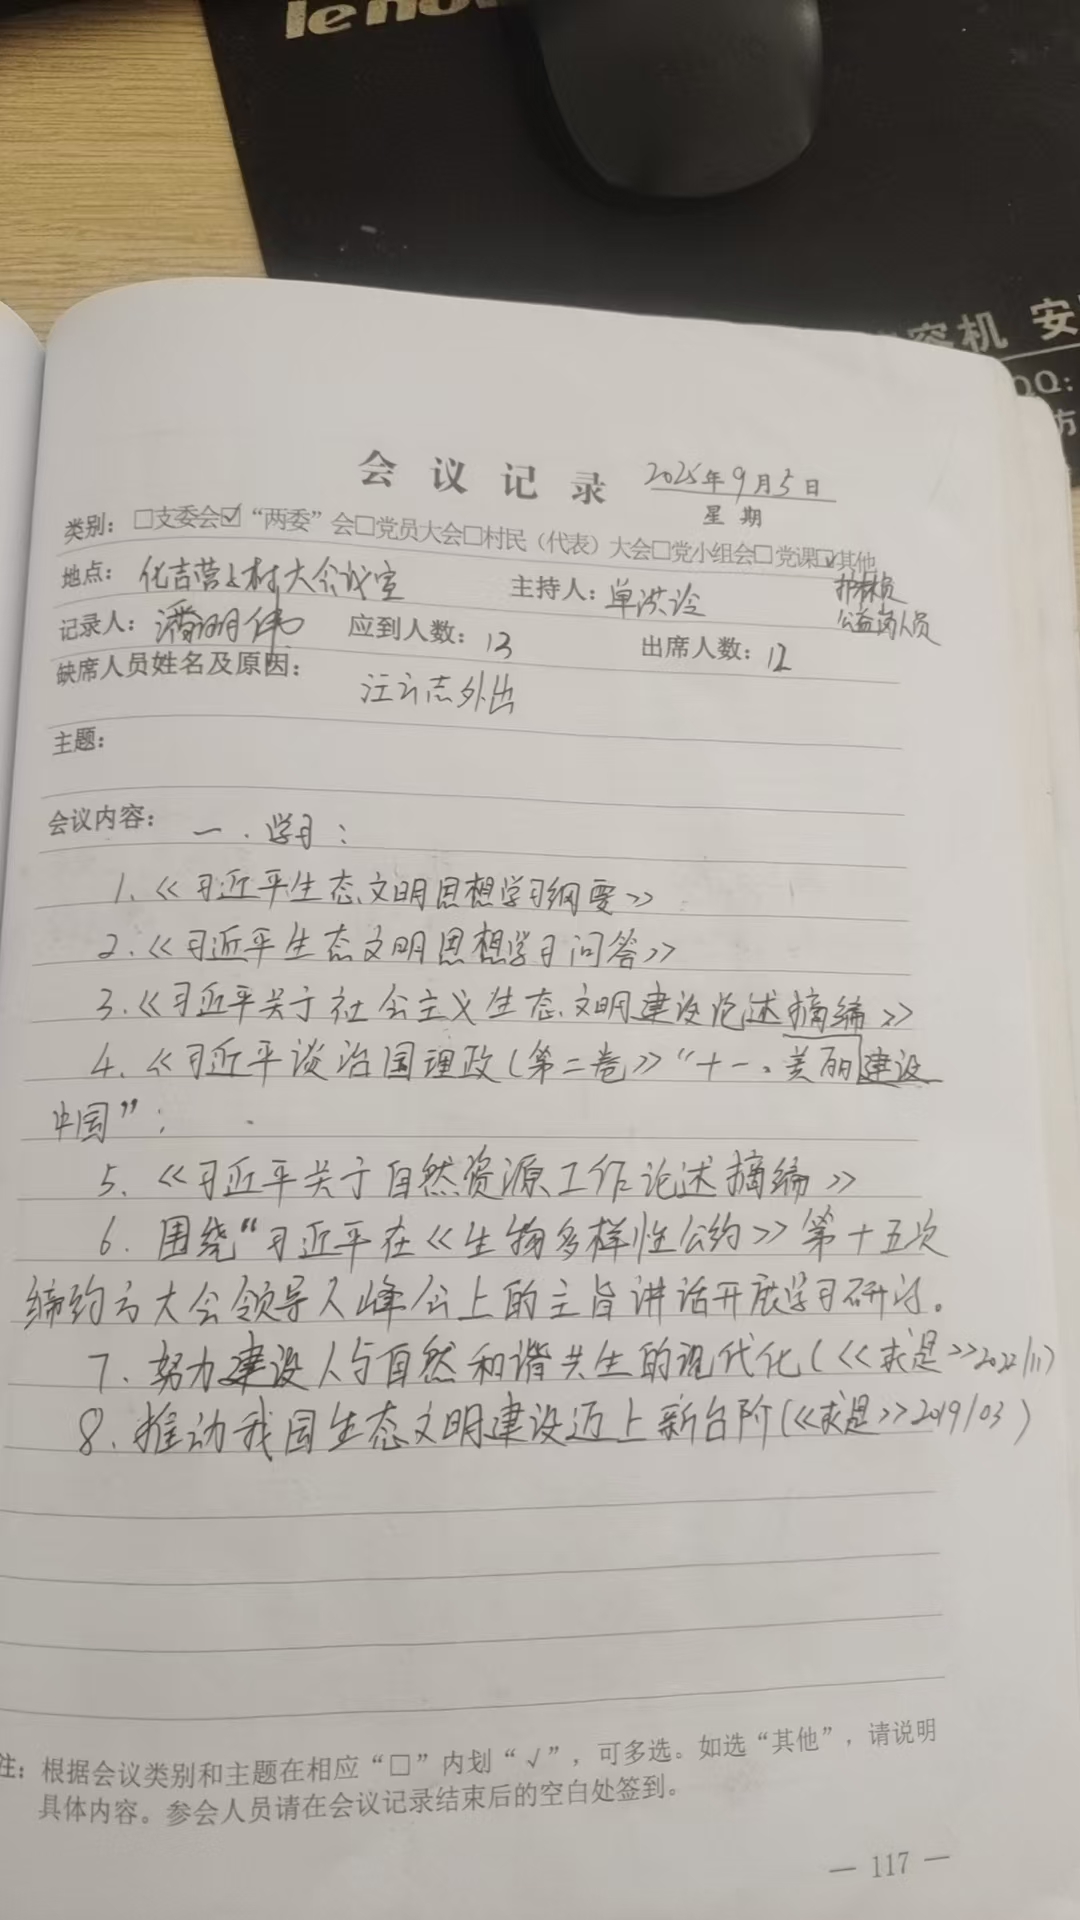 lenov
容机 安
QQ:
会议记录 2025年9月5日
星期
类别：□支委会☑“两委”会□党员大会□村民（代表）大会□党小组会□党课☑其他
护林员
公益岗人员
地点： 化吉营子村大会议室 主持人：单洪
记录人：潘明伟 应到人数：13 出席人数：12
缺席人员姓名及原因：
汪云志外出
主题：
会议内容： 一．学习：
1.《习近平生态文明思想学习纲要》
2.《习近平生态文明思想学习问答》
3.《习近平关于社会主义生态文明建设论述摘编》
4.《习近平谈治国理政(第二卷》“十一、美丽建设
中国”；
5.《习近平关于自然资源工作论述摘编》
6. 围绕“习近平在《生物多样性公约》第十五次
缔约方大会领导人峰会上的主旨讲话开展学习研讨。
7. 努力建设人与自然和谐共生的现代化(《求是》2022/11)
8. 推动我国生态文明建设迈上新台阶(《求是》2019/03)
注：根据会议类别和主题在相应“□”内划“√”，可多选。如选“其他”，请说明
具体内容。参会人员请在会议记录结束后的空白处签到。
— 117 —